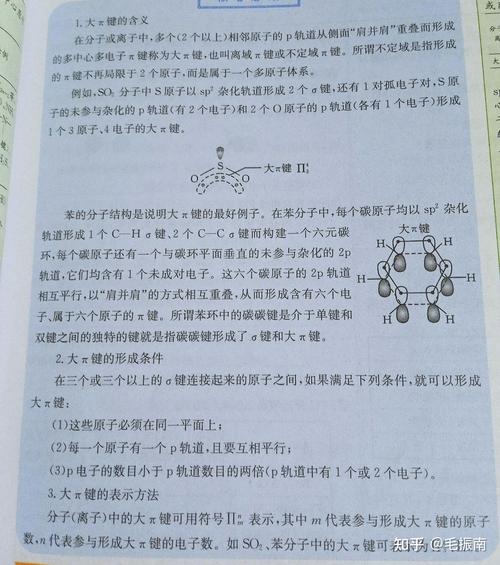 1.大π键的含义
在分子或离子中,多个(2个以上)相邻原子的p轨道从侧面“肩并肩”重叠而形成
的多中心多电子π键称为大π键,也叫离域π键或不定域π键。所谓不定域是指形成
的π键不再局限于2个原子,而是属于一个多原子体系。
例如,SO₂分子中S原子以sp²杂化轨道形成2个σ键,还有1对孤电子对,S原
子的未参与杂化的p轨道(有2个电子)和2个O原子的p轨道(各有1个电子)形成
1个3原子、4电子的大π键。
S
O O
大π键 Π₃⁴
苯的分子结构是说明大π键的最好例子。在苯分子中,每个碳原子均以sp²杂化
轨道形成1个C—Hσ键、2个C—Cσ键而构建一个六元碳
环,每个碳原子还有一个与碳环平面垂直的未参与杂化的2p
轨道,它们均含有1个未成对电子。这六个碳原子的2p轨道
相互平行,以“肩并肩”的方式相互重叠,从而形成含有六个电
子、属于六个原子的π键。所谓苯环中的碳碳键是介于单键和
双键之间的独特的键就是指碳碳键形成了σ键和大π键。
大π键
H H
H H
H H
2.大π键的形成条件
在三个或三个以上的σ键连接起来的原子之间,如果满足下列条件,就可以形成
大π键:
(1)这些原子必须在同一平面上;
(2)每一个原子有一个p轨道,且要互相平行;
(3)p电子的数目小于p轨道数目的两倍(p轨道中有1个或2个电子)。
3.大π键的表示方法
分子(离子)中的大π键可用符号Πₘⁿ表示,其中m代表参与形成大π键的原子
数,n代表参与形成大π键的电子数。如SO₂、苯分子中的大π键可
知乎 @毛振南